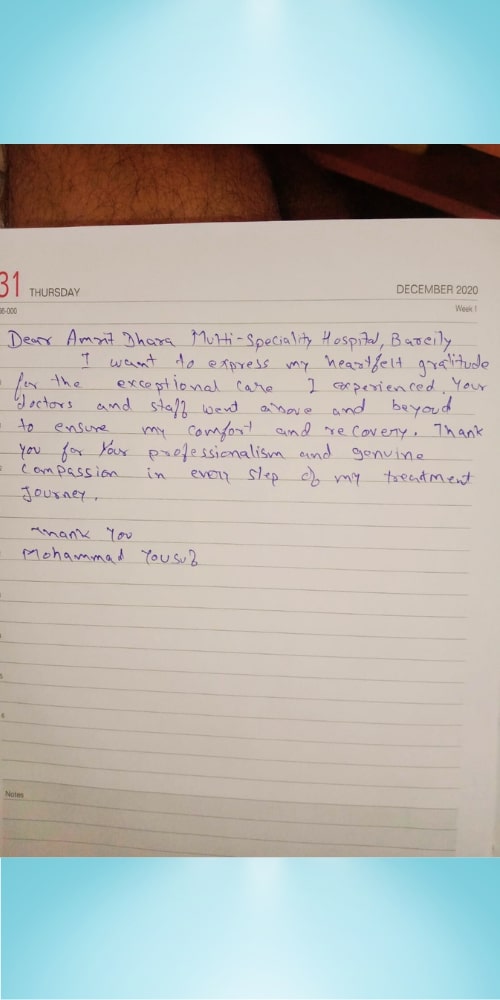 31 THURSDAY DECEMBER 2020
Week 1
Dear Amrit Dhara Multi-Speciality Hospital, Bareily
I want to express my heartfelt gratitude
for the exceptional care I experienced. Your
doctors and staff went above and beyond
to ensure my comfort and recovery. Thank
you for Your professionalism and genuine
compassion in every step of my treatment
Journey.
Thank You
Mohammad Yousuf
Notes